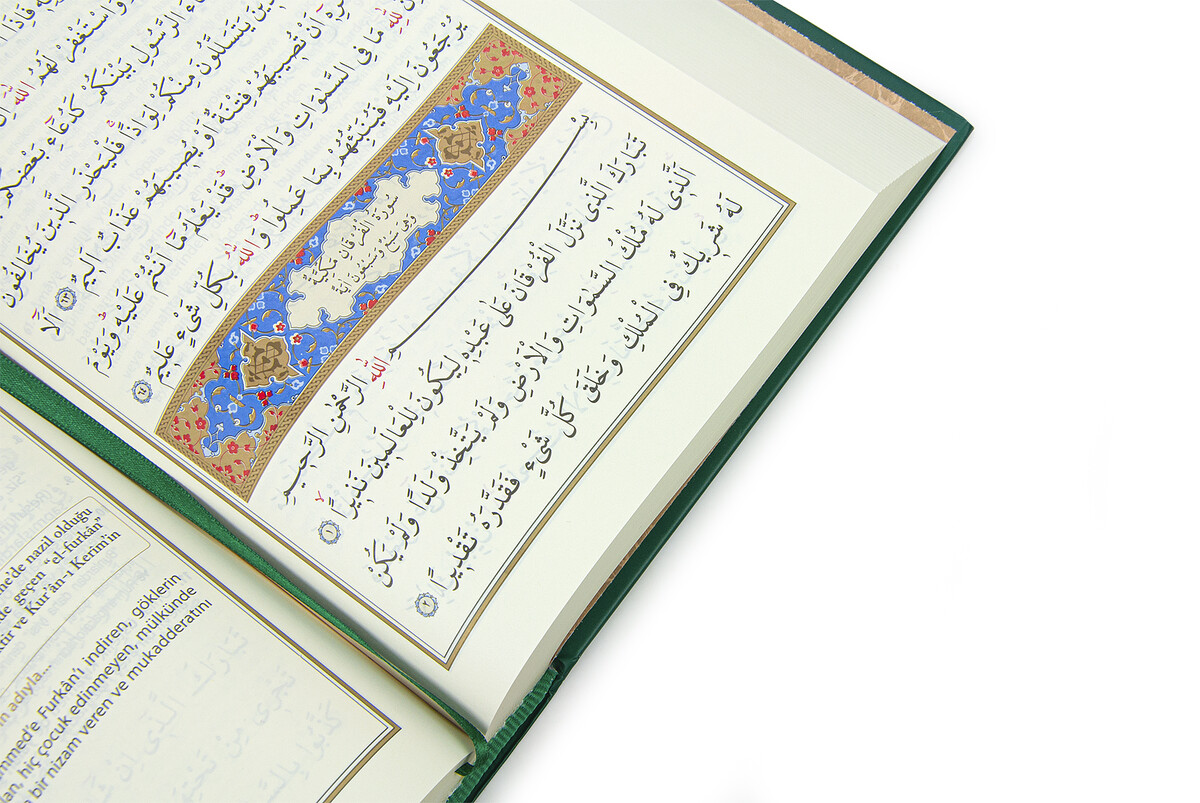 وَاسْتَغْفِرْ لَهُمُ اللّٰهَ
الرَّسُولِ بَيْنَكُمْ كَدُعَٓاءِ بَعْضِكُمْ
يَتَسَلَّلُونَ مِنْكُمْ لِوَاذًاۚ فَلْيَحْذَرِ الَّذ۪ينَ يُخَالِفُونَ
اَنْ تُص۪يبَهُمْ فِتْنَةٌ اَوْ يُص۪يبَهُمْ عَذَابٌ اَل۪يمٌ ﴿٦٣﴾ اَلَٓا
لِلّٰهِ مَا فِي السَّمٰوَاتِ وَالْاَرْضِۜ قَدْ يَعْلَمُ مَٓا اَنْتُمْ عَلَيْهِۜ وَيَوْمَ
يُرْجَعُونَ اِلَيْهِ فَيُنَبِّئُهُمْ بِمَا عَمِلُواۜ وَاللّٰهُ بِكُلِّ شَيْءٍ عَل۪يمٌ ﴿٦٤﴾
سُورَةُ الْفُرْقَانِ مَكِّيَّةٌ
وَهِيَ سَبْعٌ وَسَبْعُونَ اٰيَةً
بِسْمِ اللّٰهِ الرَّحْمٰنِ الرَّح۪يمِ
تَبَارَكَ الَّذ۪ي نَزَّلَ الْفُرْقَانَ عَلٰى عَبْدِه۪ لِيَكُونَ لِلْعَالَم۪ينَ نَذ۪يرًاۙ ﴿١﴾
اَلَّذ۪ي لَهُ مُلْكُ السَّمٰوَاتِ وَالْاَرْضِ وَلَمْ يَتَّخِذْ وَلَدًا وَلَمْ يَكُنْ
لَهُ شَر۪يكٌ فِي الْمُلْكِ وَخَلَقَ كُلَّ شَيْءٍ فَقَدَّرَهُ تَقْد۪يرًا ﴿٢﴾
nazil olduğu
geçen "el-furkân"
ve Kur'ân-ı Kerîm'in
adıyla...
Furkân'ı indiren, göklerin
hiç çocuk edinmeyen, mülkünde
bir nizam veren ve mukadderatını